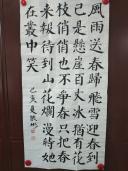 風雨送春歸飛雪迎春到
已是懸崖百丈冰猶有花
枝俏俏也不爭春只把春
來報待到山花爛漫時她
在叢中笑
己亥夏